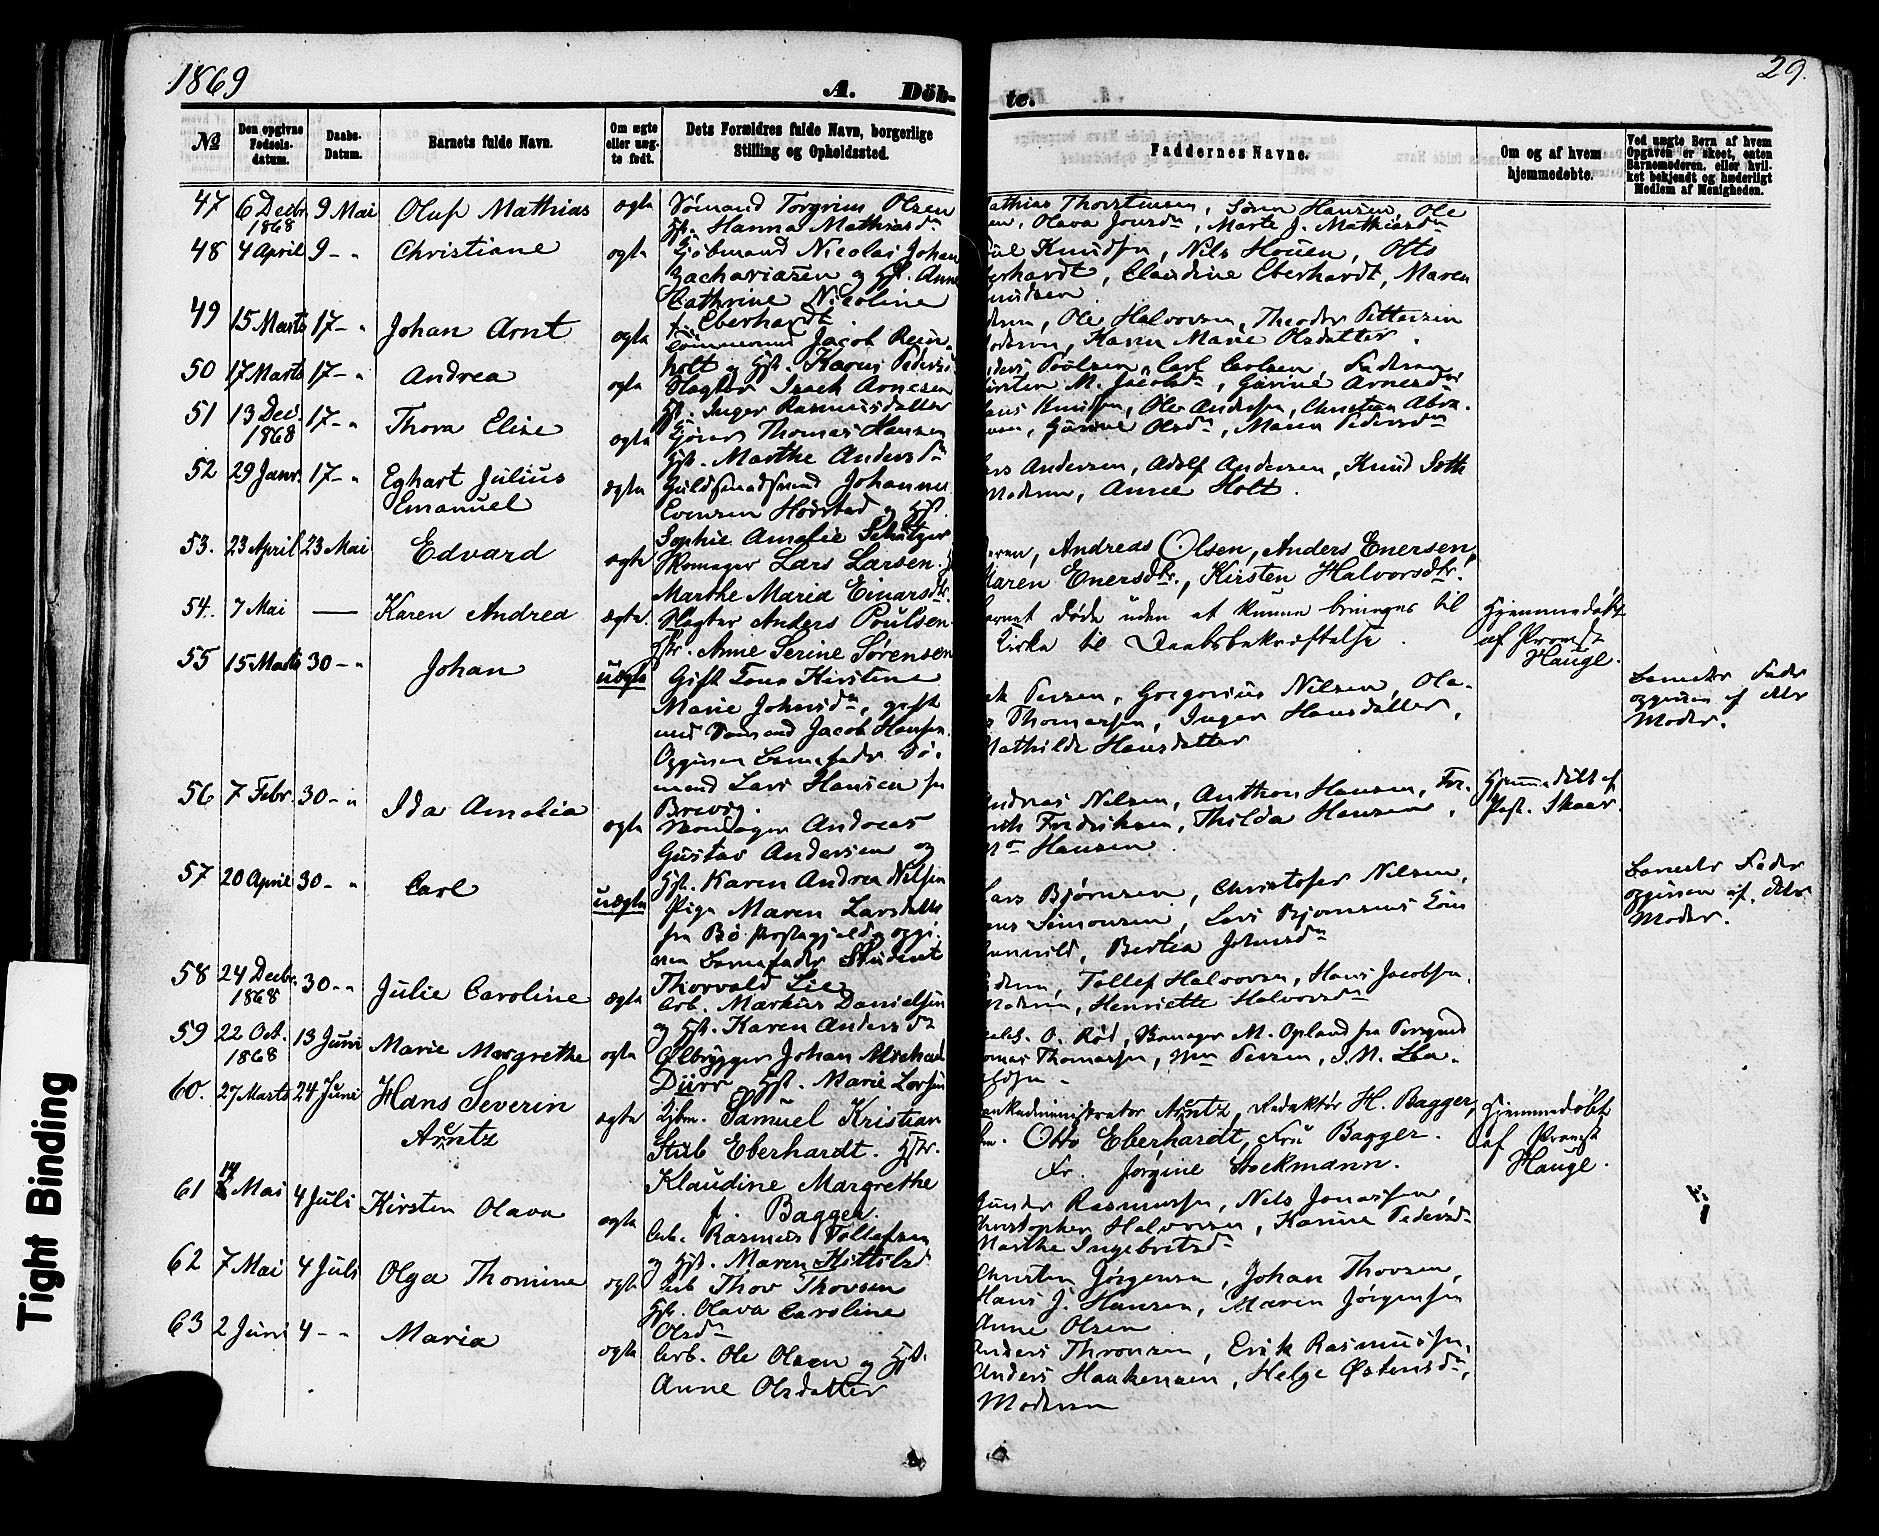 1869
A. Döb-
te.
29.
№
Den opgivne Fødselsdatum.
Daabs-Datum.
Barnets fulde Navn.
Om ægte eller uægte født.
Dets Forældres fulde Navn, borgerlige Stilling og Opholdssted.
Faddernes Navne.
Om og af hvem hjemmedøbte.
Ved uægte Børn af hvem Opgaven er skeet, enten Barnemoderen, eller hvilket bekjendt og hæderligt Medlem af Menigheden.
47 6 Decbr 1868 9 Mai Oluf Mathias ægte Sömand Torgrim Olsen
Hst. Hanna Mathiasdr
Mathias Thorstensen, Sören Hansen, Ole
Olava Jensdr, Marte J. Mathiasdr
48 4 April 9 - " Christiane ægte Kjöbmand Nicolai Johan
Zachariasen og Hst. Anne
Cathrine Nicoline
f. Eberhardt
Knudsen, Nils Houen, Otto
Eberhardt, Claudine Eberhardt, Maren
Knudsen
49 15 Marts 17 - " Johan Arnt ægte Tömmermd Jacob Rein-
holt og Hst. Karen Peders
Ole Halvorsen, Theodor Pettersen
Moderen, Karen Marie Olsdatter.
50 17 Marts 17 - " Andrea ægte Slagter Isach Arnesen
Hst. Inger Rasmusdatter
Poulsen, Carl Carlsen, Faderen
Kirsten M. Jacobsdr, Gurine Arnesdr
51 13 Dec. 1868 17 - " Thora Elise ægte Gjører Thomas Hansen
Hst. Marthe Andersdr
Hans Knudsen, Ole Andersen, Christian Abra-
Gurine Olsdr, Maren Pedersdr
52 29 Janr. 17 - " Eghart Julius
Emanuel
ægte Guldsmedsvend Johannes
Evensen Hörstad og Hst.
Sophie Amalie Schützer
Lars Andersen, Adolf Andersen, Knud Sotte
Moderen, Anne Holt.
53. 23 April 23 Mai Edvard ægte Skomager Lars Larsen
Marthe Maria Einarsdtr.
Faderen, Andreas Olsen, Anders Enersen,
Maren Enersdtr., Kirsten Halvorsdtr.
54. 7 Mai — Karen Andrea ægte. Slagter Anders Poulsen
Hstr. Anne Serine Sörensen
Barnet døde uden at kunne bringes til
Kirke til Daabsbekræftelse.
Hjemmedøbt
af Provst
Haugl.
55 15 Marts 30 - " Johan uægte Gift Kone Kirstine
Marie Johnsdr, gift
med Sömand Jacob Hansen.
Opgiven Barnefader Sö-
mand Lars Hansen fra
Brevig.
Persen, Gregorius Nilsen, Ola-
Thomassen, Inger Hansdatter,
Mathilde Hansdatter
Barnets Fader
opgiven af dets
Moder.
56 7 Febr. 30 - " Ida Amalia ægte Skomager Andreas
Gustav Andersen og
Hst. Karen Andrea Nilsen
Andreas Nilsen, Anthon Hansen, Fr.
Fredriksen, Thilda Hansen,
Hansen
Hjemmedöbt af
Past. Skaar.
57 20 April 30 - " Carl uægte Pige Maren Larsdatter
fra Bö Prestegjeld, opgi-
ven Barnefader Student
Thorvald Lie
Lars Björnsen, Christofer Nilsen,
Hans Simonsen, Lars Bjornsens Kone
Gunnild, Bertea Johnsdr
Barnets Fader
opgiven af dets
Moder.
58 24 Decbr. 1868 30 - " Julie Caroline ægte Arb. Markus Danielsen
og Hst. Karen Andersdr
Faderen, Tollef Halvorsen, Hans Jacobsen
Moderen, Henriette Halvorsdr
59 22 Oct. 1868 13 Juni Marie Margrethe ægte Ølbrygger Johan Michael
Dürr Hst. Marie Larsen
O. Rød, M. Opland fra Porsgrund
Thomas Thomassen, Persen, I. N.
60. 27 Marts 24 Juni Hans Severin
Arntz
ægte Kjbm. Samuel Kristian
Stub Eberhardt. Hstr.
Klaudine Margrethe
f. Bagger.
Bankadministrator Arntz, Redaktör H. Bagger,
Otto Eberhardt, Fru Bagger.
Fr. Jörgine Stockmann.
Hjemmedøbt
af Provst
Haugl.
61 14 Mai 4 Juli Kirsten Olava ægte Arb. Rasmus Tollefsen
og Hst. Maren Kittilsd
Gunder Rasmussen, Nils Jonassen,
Christopher Halvorsen, Karine Pedersdr
Marthe Ingebretsdr
62 7 Mai 4 Juli Olga Thomine ægte Arb Thov Thovsen
Hst. Olava Caroline
Olsdr
Christen Jörgensen, Johan Thovsen,
Hans J. Hansen, Maren Jörgensen
Anne Olsen
63 2 Juni 4 - " Maria ægte Arb. Ole Olsen og Hst.
Anne Olsdatter
Anders Thronsen, Erik Rasmussen,
Anders Haakensen, Helge Østensdr,
Moderen
Tight Binding